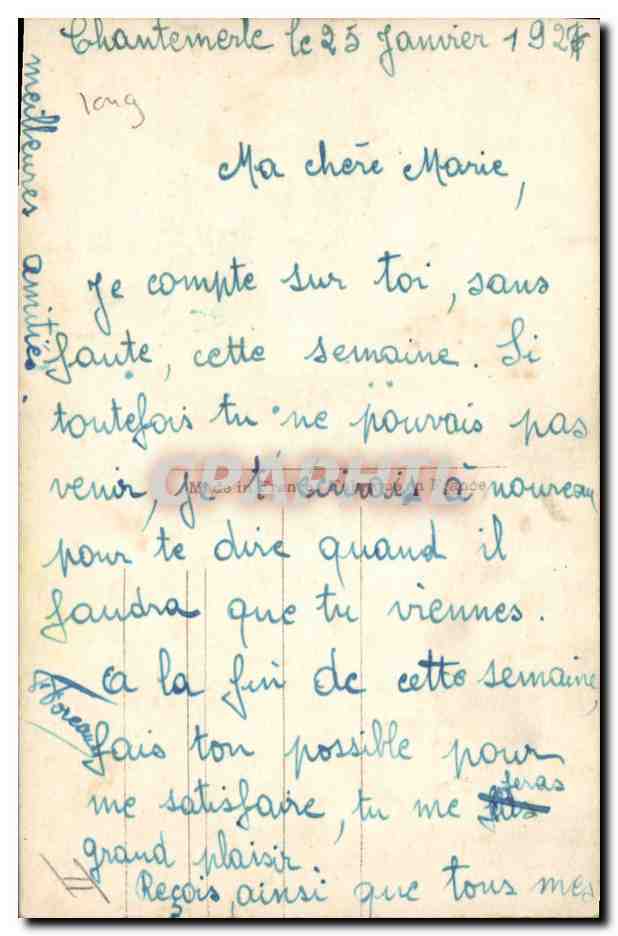 Chantemerle le 25 Janvier 192
long
Ma chère Marie,
Je compte sur toi, sans
faute, cette semaine. Si
toutefois tu ne pouvais pas
venir, je t'écrirais à nouveau
Made in France
in France
pour te dire quand il
faudra que tu viennes.
a la fin de cette semaine,
fais ton possible pour
me satisfaire, tu me feras
grand plaisir.
II
Reçois, ainsi que tous mes
meilleures amitiés.